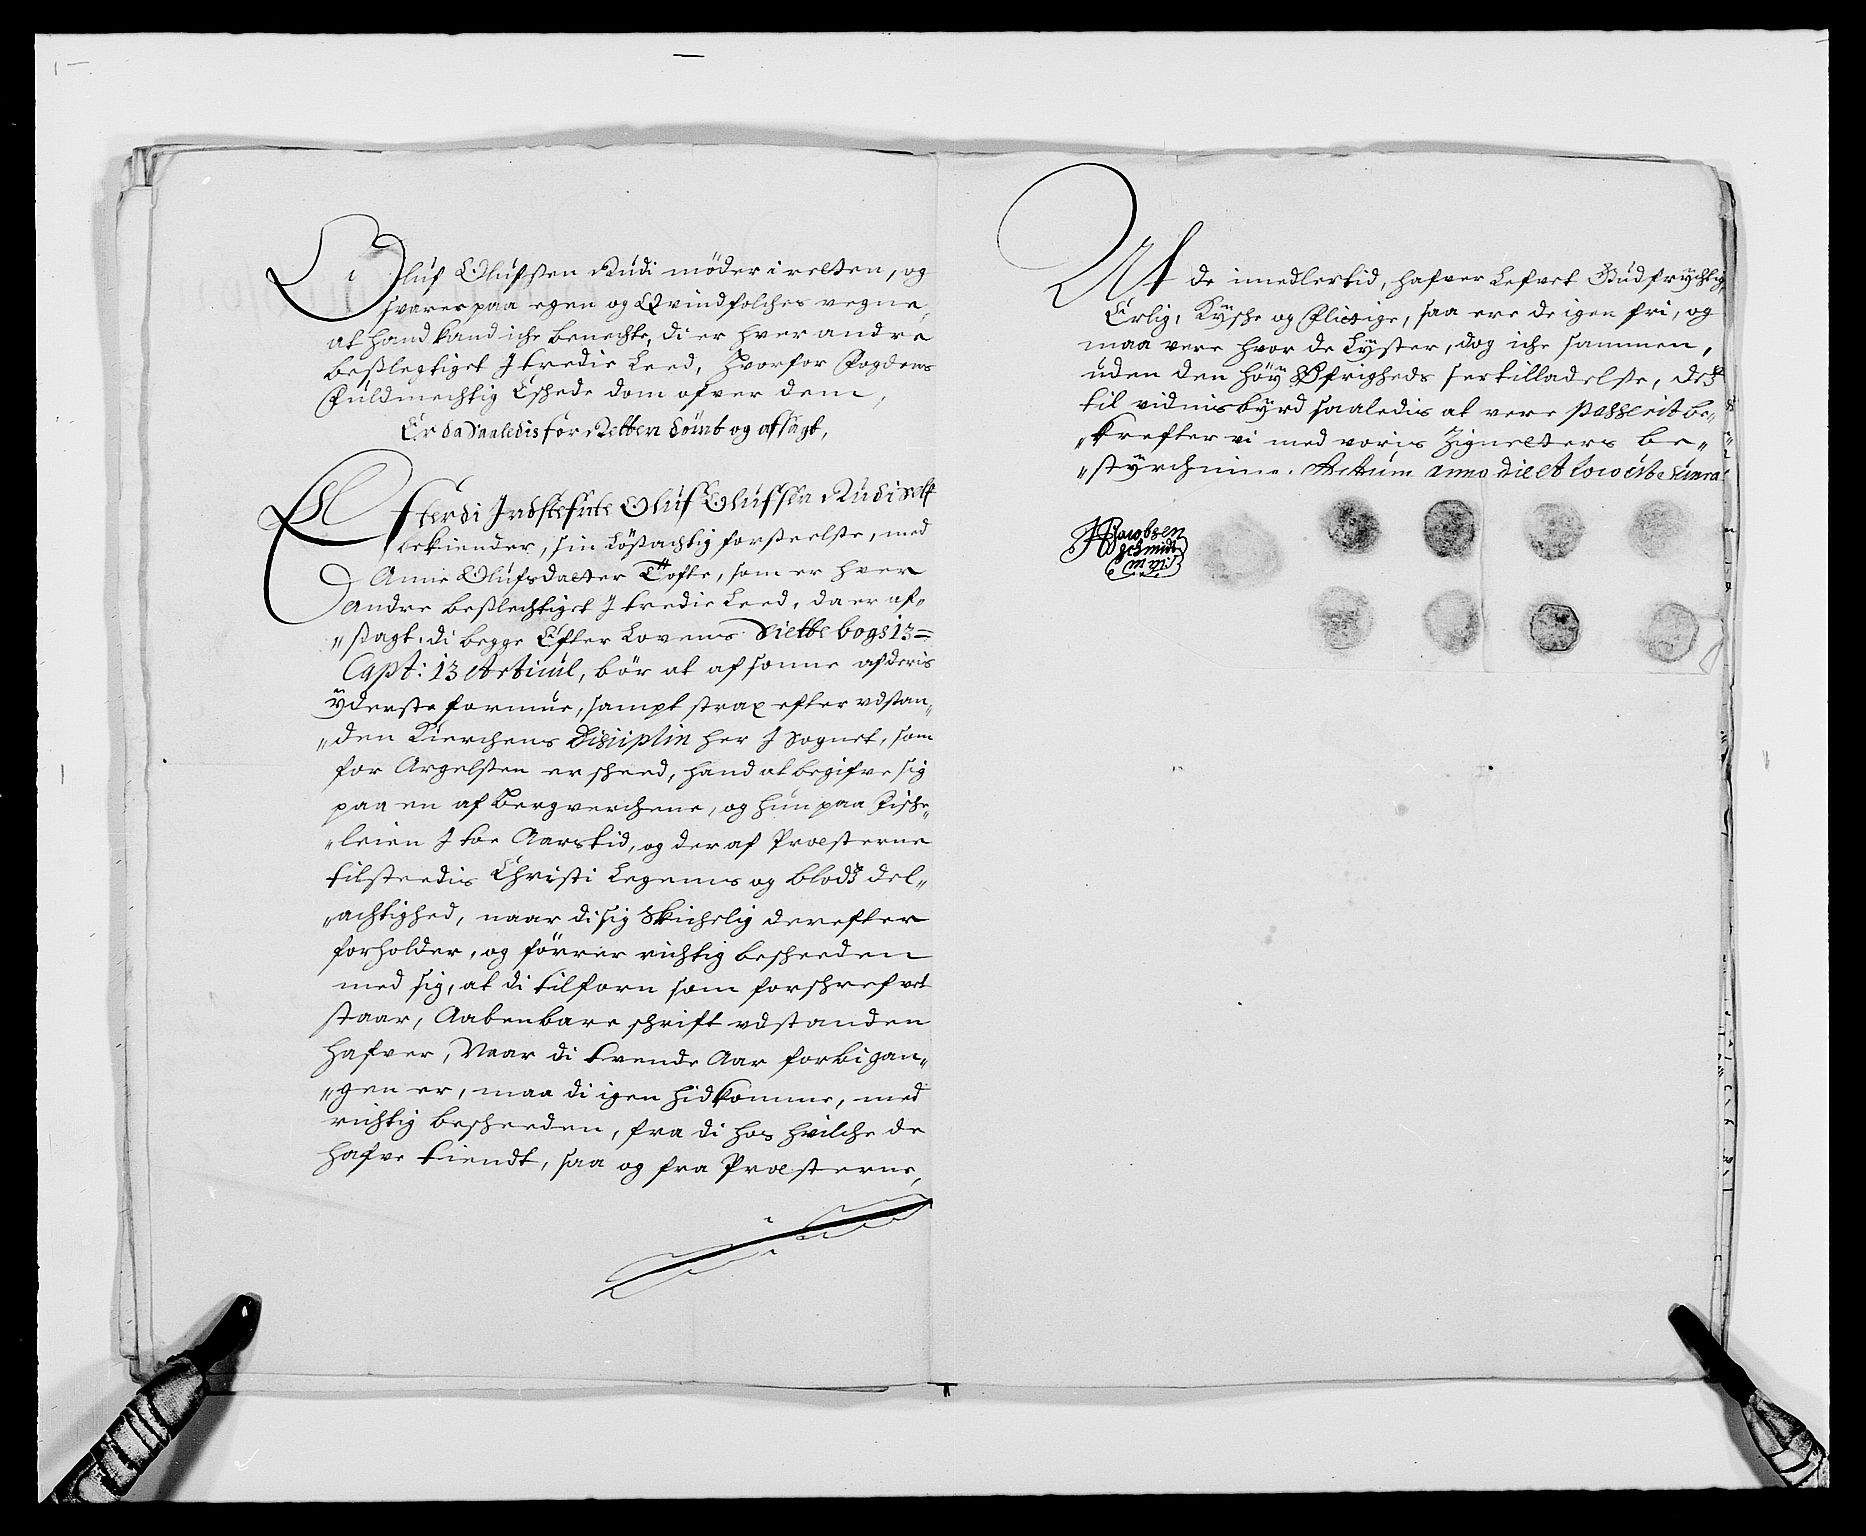 Oluf Olufssen Rudi möder i retten, og
svarer paa egen og Qvindfolches vegne,
at hand kand iche benechte, di er hver andre
besslegtiget J tredie Leed, hvorfor Fogdens
Fuldmechtig Eschede dom ofver dem,
Er da Saaledis for Retten dömt og afsagt,
Efterdi Indstefnte Oluf Olufssen Rudi self
bekiender, sin Lösachtig forseelse, med
Anne Olufsdatter Tofte, som er hver
andre besslechtiget J tredie Leed, da er af„
„sagt, di begge Efter Lovens Siette bogs 13=
Capt: 13 Articul, bör at af sonne af deris
ÿderste formue, sampt strax efter udstan„
„den Kierchens Disciplin her J Sognet, som
for Argelsen er scheed, hand at begifve sig
paa en af Bergverchene, og hun paa Fische„
„leien J toe Aarstid, og der af Præsterne
tilsteedis Christi Legems og blods del„
„achtighed, naar di sig Skichelig derefter
forholder, og förrer richtig bescheeden
med sig, at di tilforn som forschrefvet
staar, Aabenbare schrift udstanden
hafver, Naar di tvende Aar forbigan„
„gen er, maa di igen hidkomme, med
richtig bescheeden, fra di hos hvilche de
hafve tiendt, saa og fra Præsterne,
At de imedlertid, hafver Lefvet Gudfrÿchtig,
Erlig, Kÿsche og Flittige, saa ere de igen fri, og
maa vere hvor de Lÿster, dog iche sammen,
uden den höÿ Öfrigheds fertilladelse, dess
til vidnisbÿrd saaledis at vere passerit be„
„krefter vi med voris Zignetters be„
„stÿrchning. Actum anno die et loco ut supra
Jacobsen
Schmidt
mpp